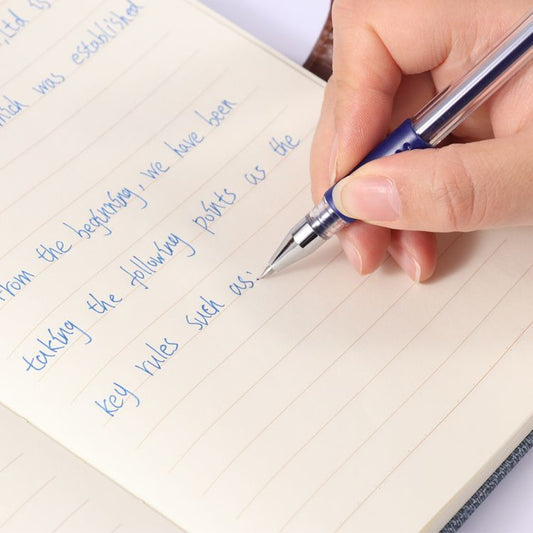 ,Ltd is
which was established
From the beginning, we have been
taking the following points as the
key rules such as: